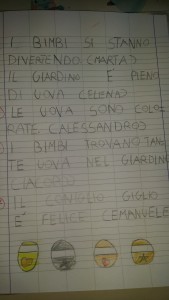 I BIMBI SI STANNO
DIVERTENDO (MARTA)
IL GIARDINO È PIENO
DI UOVA (ELENA)
LE UOVA SONO COLO
RATE (ALESSANDRO)
I BIMBI TROVANO TAN
TE UOVA NEL GIARDINO
(JACOPO)
IL CONIGLIO GIGLIO
È FELICE (EMANUELE)